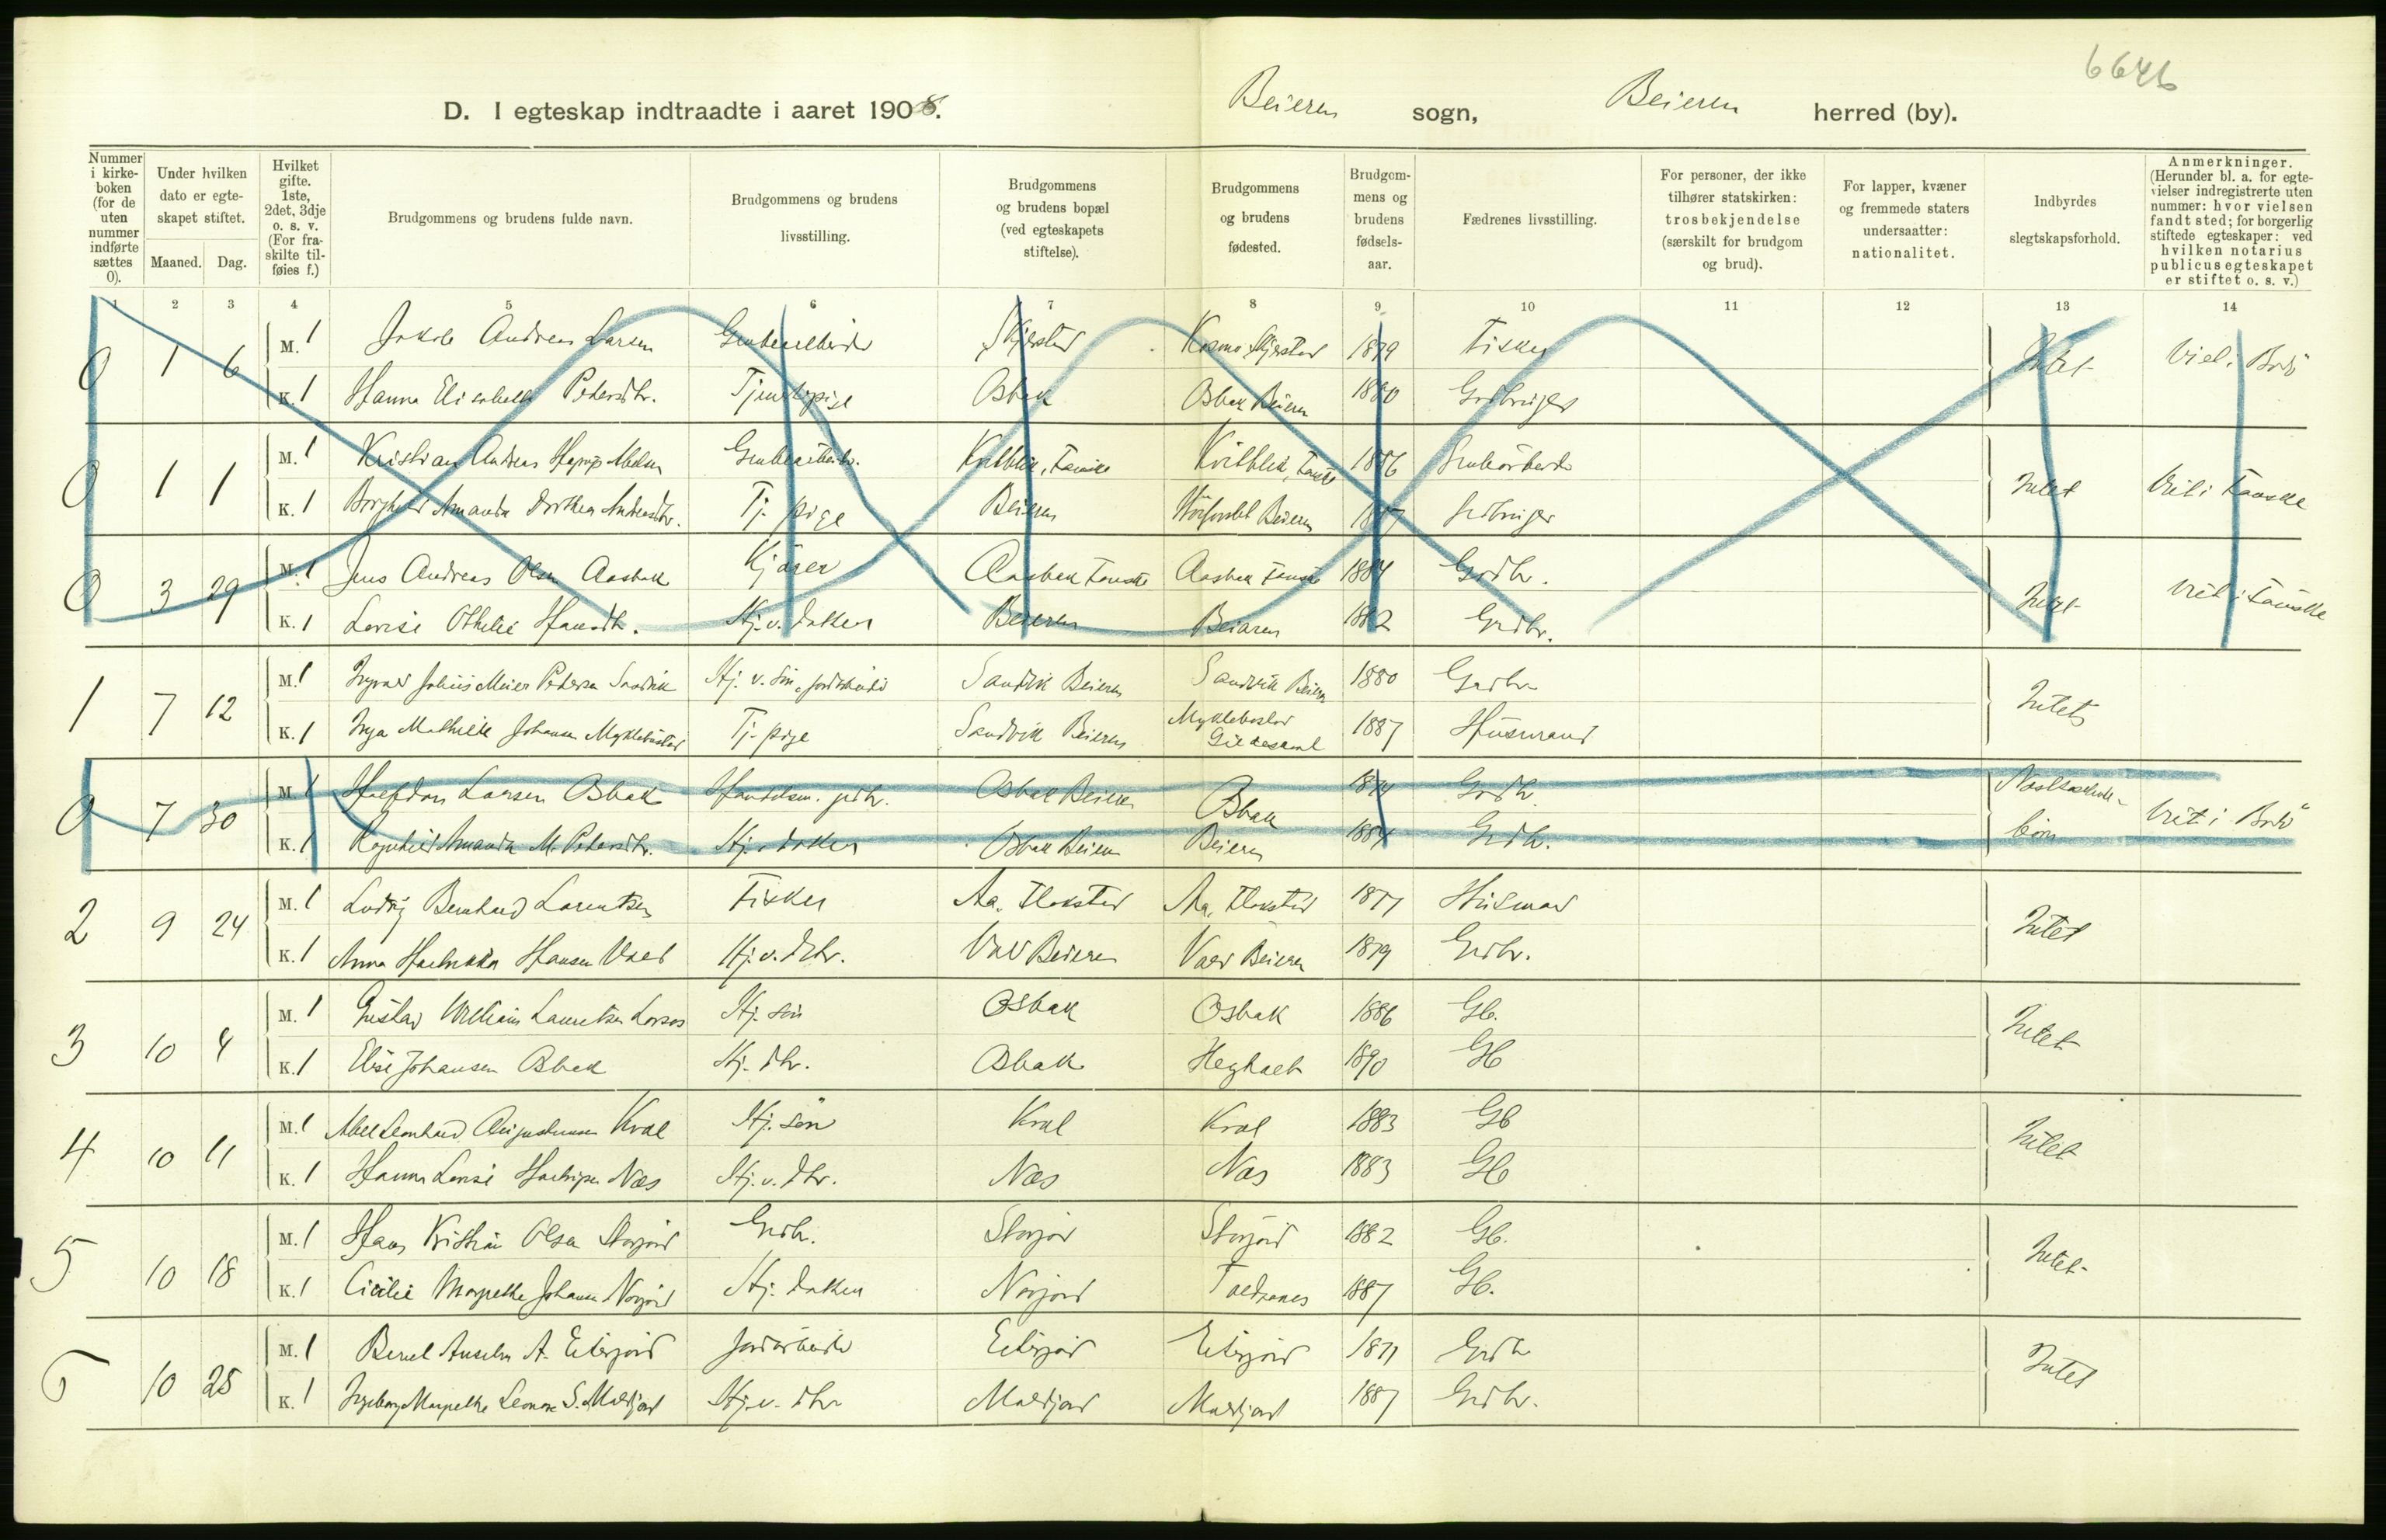 6646
D. I egteskap indtraadte i aaret 1908. Beieren sogn, Beieren herred (by).
Nummer i kirkeboken (for de uten nummer indførte sættes 0).
Under hvilken dato er egteskapet stiftet.
Maaned. Dag.
Hvilket gifte. 1ste, 2det, 3dje o. s. v. (For fraskilte tilføies f.)
Brudgommens og brudens fulde navn.
Brudgommens og brudens livsstilling.
Brudgommens og brudens bopæl (ved egteskapets stiftelse).
Brudgommens og brudens fødested.
Brudgommens og brudens fødselsaar.
Fædrenes livsstilling.
For personer, der ikke tilhører statskirken: trosbekjendelse (særskilt for brudgom og brud).
For lapper, kvæner og fremmede staters undersaatter: nationalitet.
Indbyrdes slegtskapsforhold.
Anmerkninger. (Herunder bl. a. for egtevielser indregistrerte uten nummer: hvor vielsen fandt sted; for borgerlig stiftede egteskaper: ved hvilken notarius publicus egteskapet er stiftet o. s. v.)
1 2 3 4 5 6 7 8 9 10 11 12 13 14
0 1 6 M. 1 Jakob Andreas Larsen Skjerstad Skjerstad 1879 Fisker Intet Viet i Bodö
K. 1 Hanna Elisabeth Pedersdtr. Tjenestepige Osbak Osbak Beieren 1880 Grdbruger
0 1 1 M. 1 Kristian Andreas Kvitblik, Fauske Kvitblik, Fauske 1886 Intet Viet i Fauske
K. 1 Amanda Dorthea Andreasdtr. Tj. pige Beieren Beieren 1887
0 3 29 M. 1 Jens Andreas Olsen Aasbak Aasbak Fauske Aasbak Fauske 1884 Grdbr. Intet Viet i Fauske
K. 1 Lovise Othelie Hj. v. datter Beieren Beiaren 1882 Grdbr.
1 7 12 M. 1 Pedersen Sandvik Hj. v. sön, Sandvik Beieren Sandvik Beieren 1880 Grdbr Intet
K. 1 Inga Mathilde Johansen Myklebostad Tj. pige Sandvik Beieren Myklebostad Gildeskaal 1887 Husmand
0 7 30 M. 1 Halfdan Larsen Osbak Osbak Beieren Osbak 1874 Grdbr. Viet i Bodö
K. 1 Amanda M. Pedersdtr. Hj. v. datter Osbak Beieren Beieren 1884 Grdbr.
2 9 24 M. 1 Ludvig Bernhard Lorentsen Fisker Aa. Flokstad Aa. Flokstad 1877 Husmand Intet
K. 1 Anna Hansen Vold Hj. v. dtr. Vold Beieren Vold Beieren 1879 Grdbr.
3 10 4 M. 1 Gustav William Lauritsen Hj. sön Osbak Osbak 1886 Gb. Intet
K. 1 Elise Johansen Osbak Hj. dtr. Osbak 1890 Gb
4 10 11 M. 1 Abel Leonhard Augustinusen Kvæl Hj. sön Kvæl Kvæl 1883 Gb Intet
K. 1 Hanna Lovise Næs Hj. v. dtr. Næs Næs 1883 Gb
5 10 18 M. 1 Hans Kristian Olsen Storjord Grdbr. Storjord Storjord 1882 Gb. Intet
K. 1 Cicilie Margrethe Johansen Norjord Hj. datter Norjord 1887 Gb.
6 10 25 M. 1 Berul Anselm A. Eiterjord Jordarbeider Eiterjord Eiterjord 1871 Grdbr Intet
K. 1 Ingeborg Margrethe Leonore S. Moldjord Hj. v. dtr Moldjord Moldjord 1887 Grdbr.